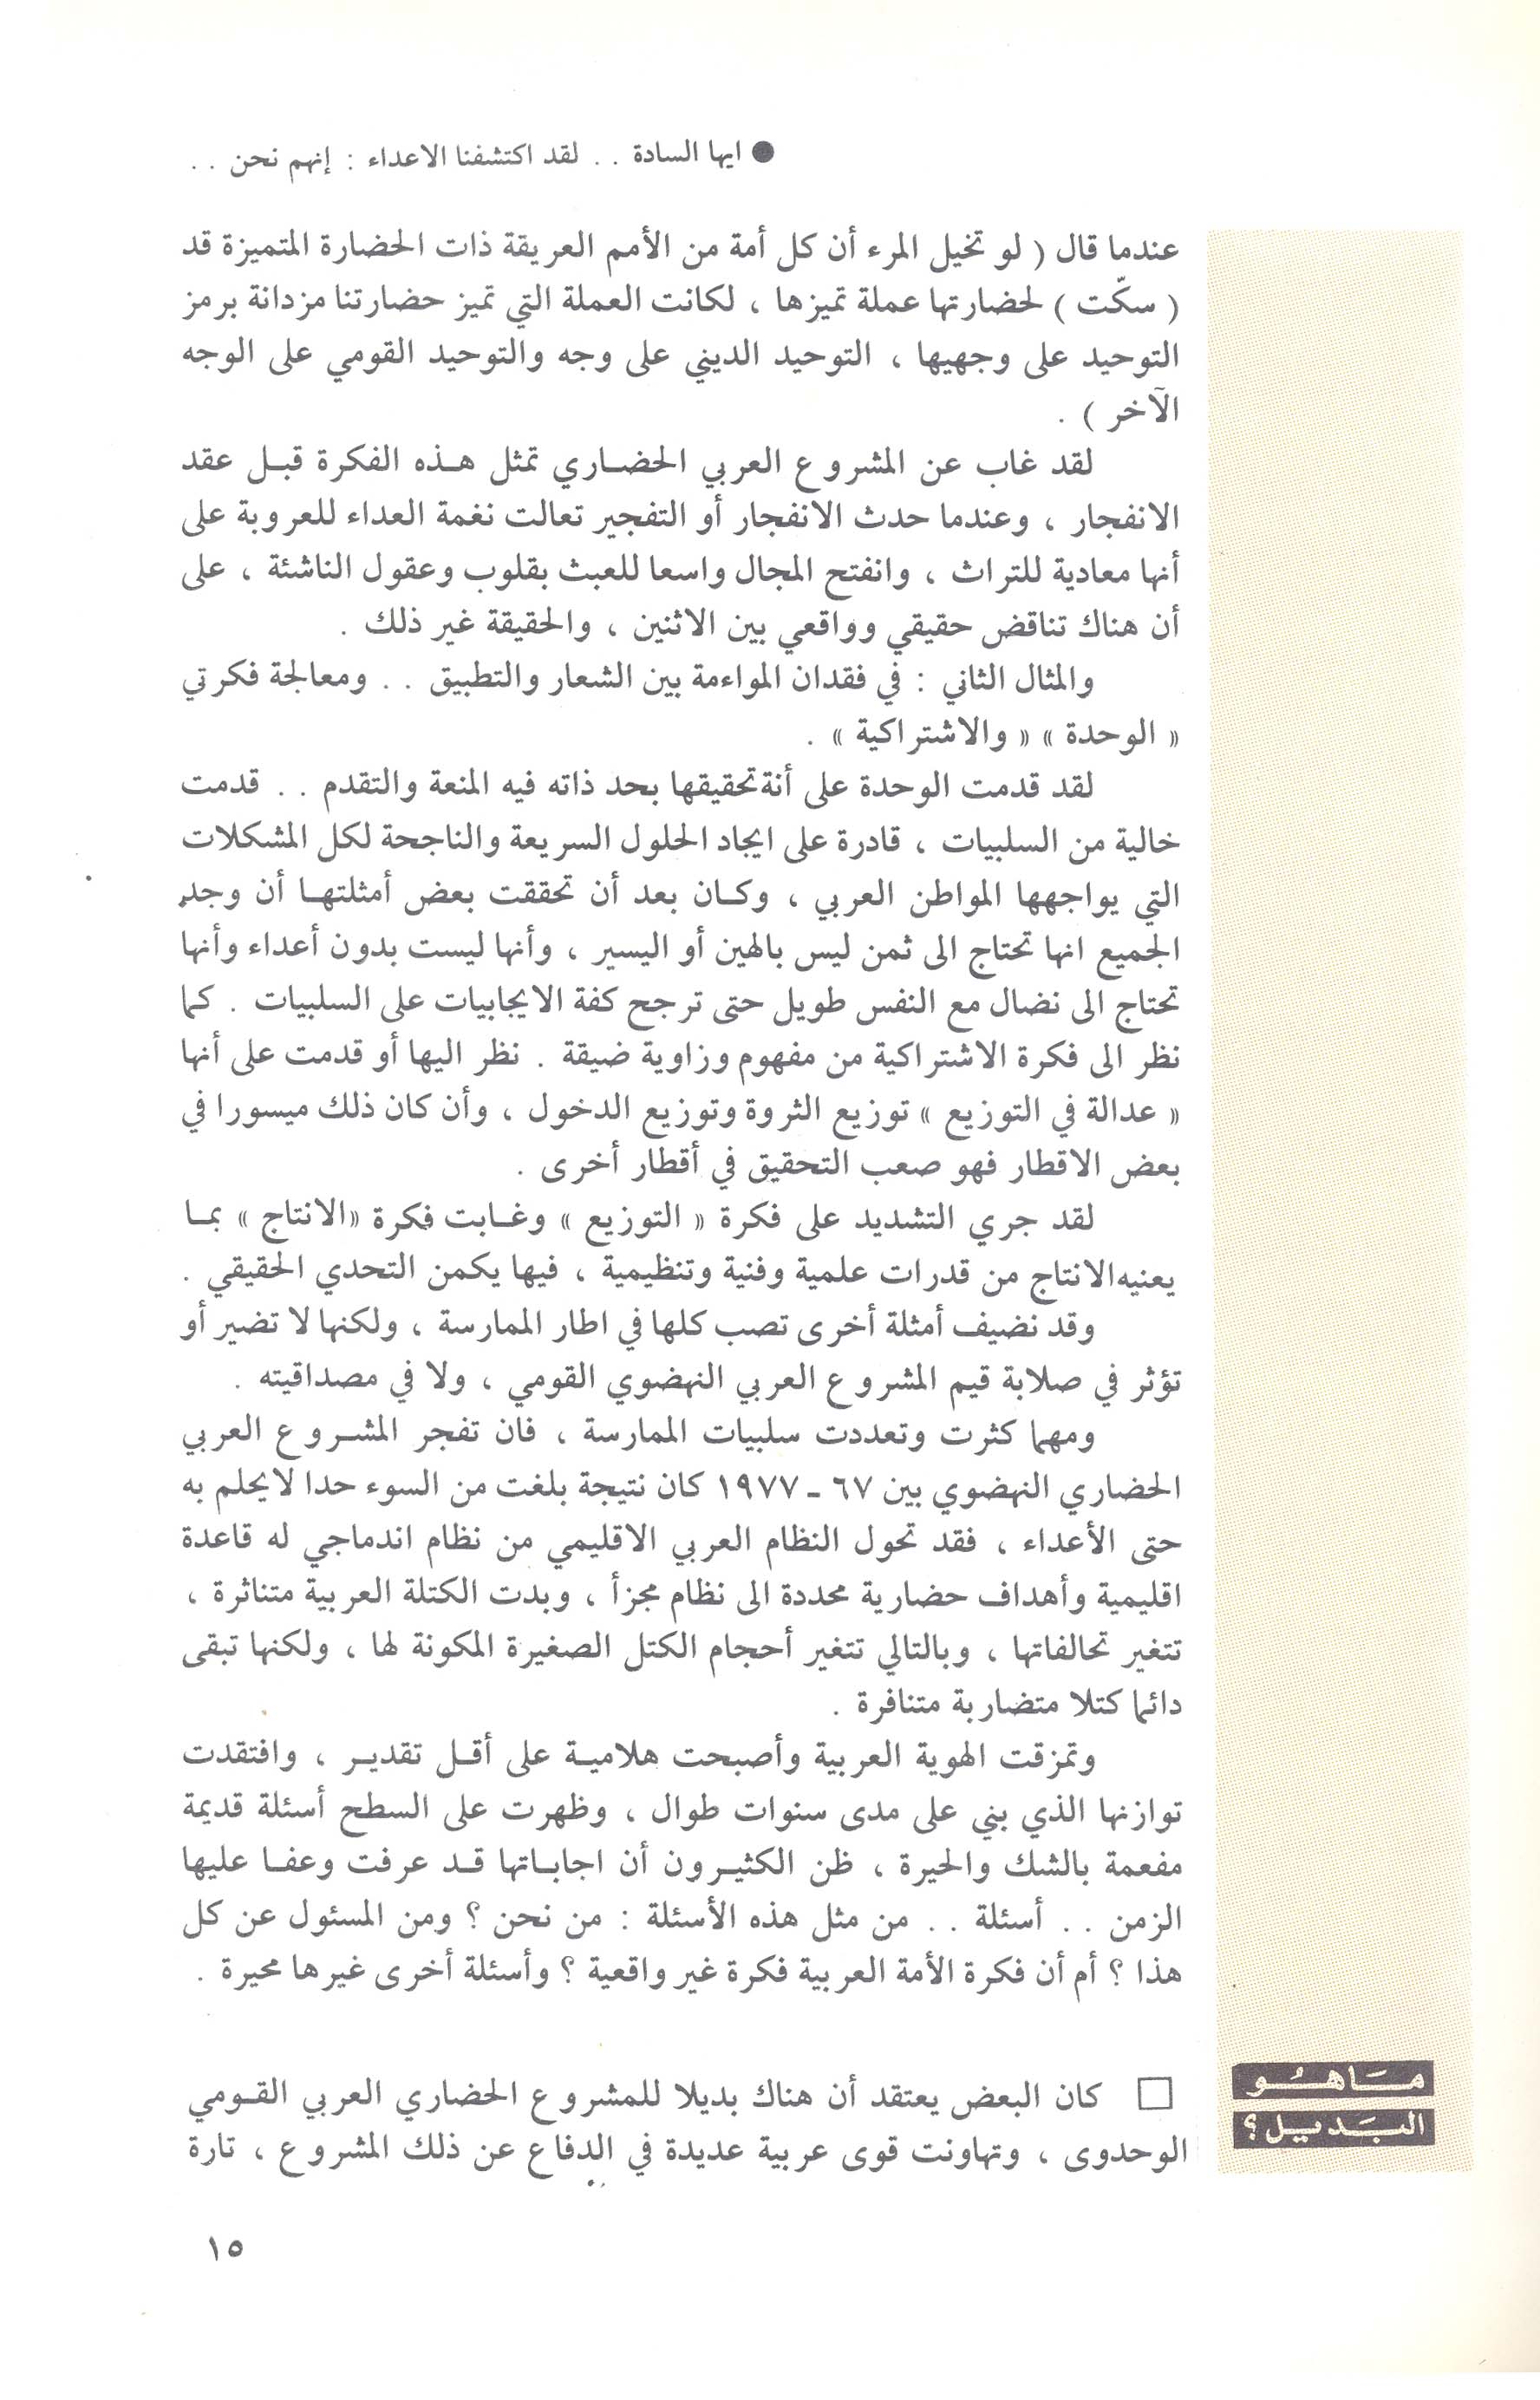 ● ايها السادة . . لقد اكتشفنا الاعداء : إنهم نحن . .
عندما قال ( لو تخيل المرء أن كل أمة من الأمم العريقة ذات الحضارة المتميزة قد
( سكّت ) لحضارتها عملة تميزها ، لكانت العملة التي تميز حضارتنا مزدانة برمز
التوحيد على وجهيها ، التوحيد الديني على وجه والتوحيد القومي على الوجه
الآخر ) .
لقد غاب عن المشروع العربي الحضاري تمثل هذه الفكرة قبل عقد
الانفجار ، وعندما حدث الانفجار أو التفجير تعالت نغمة العداء للعروبة على
أنها معادية للتراث ، وانفتح المجال واسعا للعبث بقلوب وعقول الناشئة ، على
أن هناك تناقض حقيقي وواقعي بين الاثنين ، والحقيقة غير ذلك .
والمثال الثاني : في فقدان المواءمة بين الشعار والتطبيق . . ومعالجة فكرتي
« الوحدة » « والاشتراكية » .
لقد قدمت الوحدة على أنة تحقيقها بحد ذاته فيه المنعة والتقدم . . قدمت
خالية من السلبيات ، قادرة على ايجاد الحلول السريعة والناجحة لكل المشكلات
التي يواجهها المواطن العربي ، وكان بعد أن تحققت بعض أمثلتها أن وجد
الجميع انها تحتاج الى ثمن ليس بالهين أو اليسير ، وأنها ليست بدون أعداء وأنها
تحتاج الى نضال مع النفس طويل حتى ترجح كفة الايجابيات على السلبيات . كما
نظر الى فكرة الاشتراكية من مفهوم وزاوية ضيقة . نظر اليها أو قدمت على أنها
« عدالة في التوزيع » توزيع الثروة وتوزيع الدخول ، وأن كان ذلك ميسورا في
بعض الاقطار فهو صعب التحقيق في أقطار أخرى .
لقد جري التشديد على فكرة « التوزيع » وغابت فكرة «الانتاج » بما
يعنيه الانتاج من قدرات علمية وفنية وتنظيمية ، فيها يكمن التحدي الحقيقي .
وقد نضيف أمثلة أخرى تصب كلها في اطار الممارسة ، ولكنها لا تضير أو
تؤثر في صلابة قيم المشروع العربي النهضوي القومي ، ولا في مصداقيته .
ومهما كثرت وتعددت سلبيات الممارسة ، فان تفجر المشروع العربي
الحضاري النهضوي بين ٦٧ - ١٩٧٧ كان نتيجة بلغت من السوء حدا لا يحلم به
حتى الأعداء ، فقد تحول النظام العربي الاقليمي من نظام اندماجي له قاعدة
اقليمية وأهداف حضارية محددة الى نظام مجزأ ، وبدت الكتلة العربية متناثرة ،
تتغير تحالفاتها ، وبالتالي تتغير أحجام الكتل الصغيرة المكونة لها ، ولكنها تبقى
دائما كتلا متضاربة متنافرة .
وتمزقت الهوية العربية وأصبحت هلامية على أقل تقدير ، وافتقدت
توازنها الذي بني على مدى سنوات طوال ، وظهرت على السطح أسئلة قديمة
مفعمة بالشك والحيرة ، ظن الكثيرون أن اجاباتها قد عرفت وعفا عليها
الزمن . . أسئلة . . من مثل هذه الأسئلة : من نحن ؟ ومن المسئول عن كل
هذا ؟ أم أن فكرة الأمة العربية فكرة غير واقعية ؟ وأسئلة أخرى غيرها محيرة .
ما هو
البديل ؟
□ كان البعض يعتقد أن هناك بديلا للمشروع الحضاري العربي القومي
الوحدوى ، وتهاونت قوى عربية عديدة في الدفاع عن ذلك المشروع ، تارة
١٥